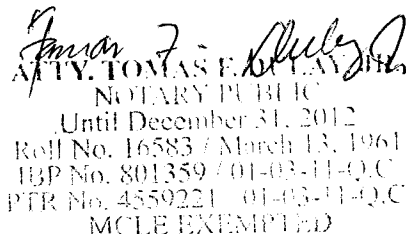 Tomas F.
ATTY. TOMAS F.
NOTARY PUBLIC
Until December 31, 2012
Roll No. 16583 / March 13, 1961
IBP No. 801359 / 01-03-11-Q.C
PTR No. 4559221 01-03-11-Q.C
MCLE EXEMPTED